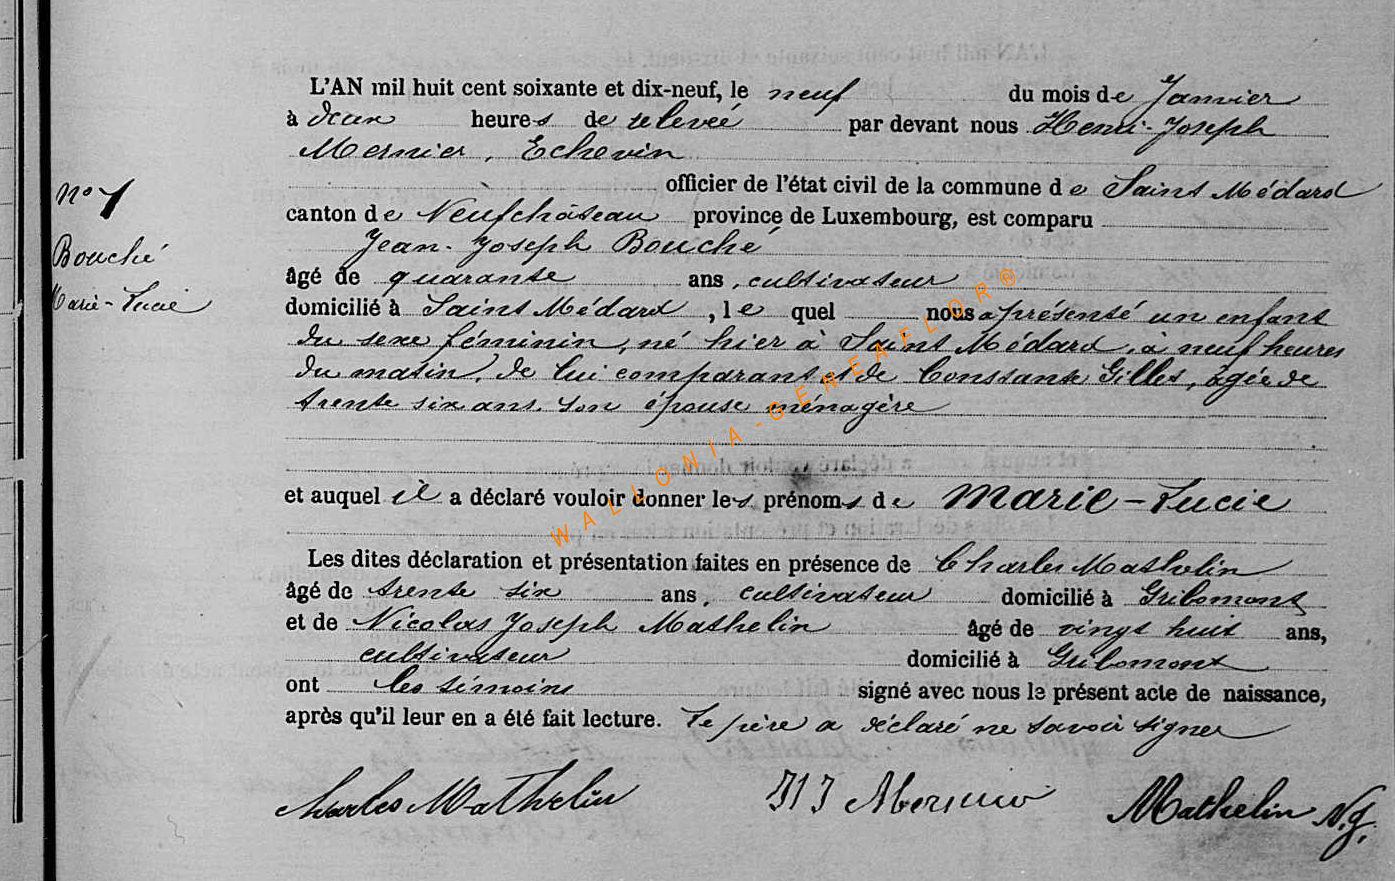 L'AN mil huit cent soixante et dix-neuf, le neuf du mois de Janvier
à deux heures de relevée par devant nous Henri-Joseph
Mernier, Echevin
officier de l'état civil de la commune de Saint Médard
canton de Neufchâteau province de Luxembourg, est comparu
Jean-Joseph Bouché
âgé de quarante ans, cultivateur
domicilié à Saint Médard, le quel nous a présenté un enfant
du sexe féminin, né hier à Saint Médard, à neuf heures
du matin, de lui comparant et de Constance Gilles, âgée de
trente six ans, son épouse ménagère
et auquel il a déclaré vouloir donner les prénoms de Marie-Lucie
Les dites déclaration et présentation faites en présence de Charles Mathelin
âgé de trente six ans, cultivateur domicilié à Gribomont
et de Nicolas Joseph Mathelin âgé de vingt huit ans,
cultivateur domicilié à Gribomont
ont les témoins signé avec nous le présent acte de naissance,
après qu'il leur en a été fait lecture. Le père a déclaré ne savoir signer
Charles Mathelin HJ Mernier Mathelin N.J.
N° 1
Bouché
Marie-Lucie
WALLONIA-GENEAFLOR®